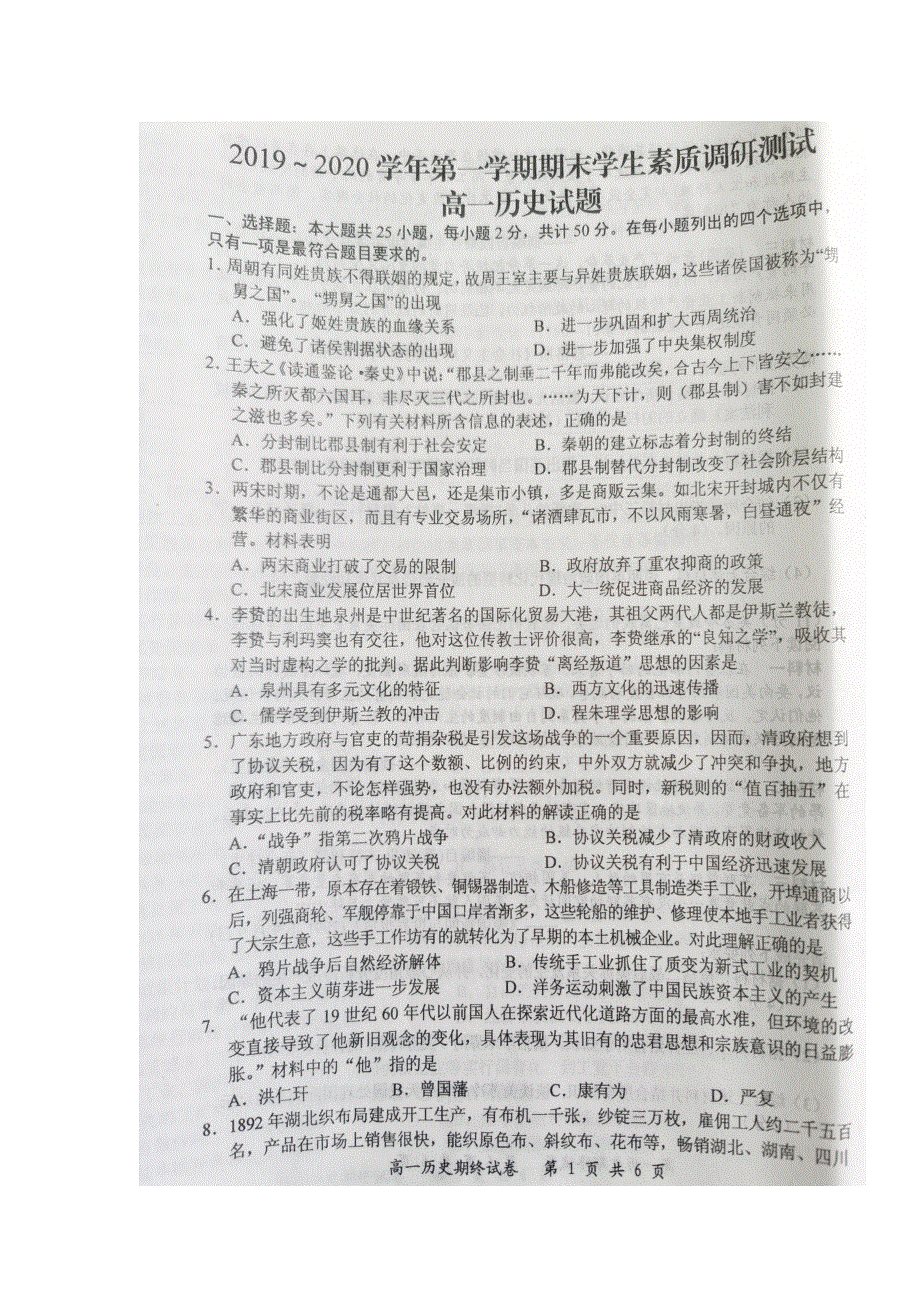 2019～2020学年第一学期期末学生素质调研测试
高一历史试题
一、选择题：本大题共25小题，每小题2分，共计50分。在每小题列出的四个选项中，
只有一项是最符合题目要求的。
1. 周朝有同姓贵族不得联姻的规定，故周王室主要与异姓贵族联姻，这些诸侯国被称为“甥
舅之国”。 “甥舅之国”的出现
A．强化了姬姓贵族的血缘关系 B．进一步巩固和扩大西周统治
C．避免了诸侯割据状态的出现 D．进一步加强了中央集权制度
2. 王夫之《读通鉴论·秦史》中说：“郡县之制垂二千年而弗能改矣，合古今上下皆安之……
秦之所灭都六国耳，非尽灭三代之所封也。……为天下计，则（郡县制）害不如封建
之滋也多矣。”下列有关材料所含信息的表述，正确的是
A．分封制比郡县制有利于社会安定 B．秦朝的建立标志着分封制的终结
C．郡县制比分封制更利于国家治理 D．郡县制替代分封制改变了社会阶层结构
3. 两宋时期，不论是通都大邑，还是集市小镇，多是商贩云集。如北宋开封城内不仅有
繁华的商业街区，而且有专业交易场所，“诸酒肆瓦市，不以风雨寒暑，白昼通夜”经
营。材料表明
A．两宋商业打破了交易的限制 B．政府放弃了重农抑商的政策
C．北宋商业发展位居世界首位 D．大一统促进商品经济的发展
4. 李贽的出生地泉州是中世纪著名的国际化贸易大港，其祖父两代人都是伊斯兰教徒，
李贽与利玛窦也有交往，他对这位传教士评价很高，李贽继承的“良知之学”，吸收其
对当时虚构之学的批判。据此判断影响李贽“离经叛道”思想的因素是
A．泉州具有多元文化的特征 B．西方文化的迅速传播
C．儒学受到伊斯兰教的冲击 D．程朱理学思想的影响
5. 广东地方政府与官吏的苛捐杂税是引发这场战争的一个重要原因，因而，清政府想到
了协议关税，因为有了这个数额、比例的约束，中外双方就减少了冲突和争执，地方
政府和官吏，不论怎样强势，也没有办法额外加税。同时，新税则的“值百抽五”在
事实上比先前的税率略有提高。对此材料的解读正确的是
A．“战争”指第二次鸦片战争 B．协议关税减少了清政府的财政收入
C．清朝政府认可了协议关税 D．协议关税有利于中国经济迅速发展
6. 在上海一带，原本存在着锻铁、铜锡器制造、木船修造等工具制造类手工业，开埠通商以
后，列强商轮、军舰停靠于中国口岸者渐多，这些轮船的维护、修理使本地手工业者获得
了大宗生意，这些手工作坊有的就转化为了早期的本土机械企业。对此理解正确的是
A．鸦片战争后自然经济解体 B．传统手工业抓住了质变为新式工业的契机
C．资本主义萌芽进一步发展 D．洋务运动刺激了中国民族资本主义的产生
7. “他代表了19世纪60年代以前国人在探索近代化道路方面的最高水准，但环境的改
变直接导致了他新旧观念的变化，具体表现为其旧有的忠君思想和宗族意识的日益膨
胀。”材料中的“他”指的是
A．洪仁玕 B．曾国藩 C．康有为 D．严复
8. 1892年湖北织布局建成开工生产，有布机一千张，纱锭三万枚，雇佣工人约二千五百
名，产品在市场上销售很快，能织原色布、斜纹布、花布等，畅销湖北、湖南、四川
高一历史期终试卷 第 1 页 共 6 页